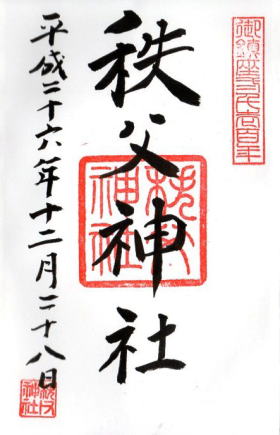 御鎮座弐千壱百年
秩父神社
秩父神社
平成二十六年十二月二十八日
秩父神社